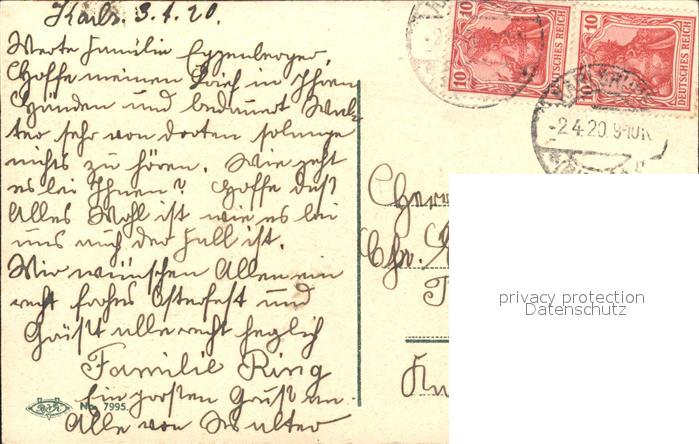 Karls. 3.4.20.
Werte Familie Eyzenberger,
Hoffe meinen Brief in Ihren
Händen und bedauert Wal-
ter sehr von dorten solange
nichts zu hören. Wie geht
es bei Ihnen? Hoffe daß
Alles Wohl ist wie es bei
uns auch der Fall ist.
Wir wünschen Allen ein
recht frohes Osterfest und
Grüßt alle recht herzlich
Familie Ring
Ein großen Gruß an
Alle von Walter
No. 7995.
10 10
DEUTSCHES REICH
10 10
DEUTSCHES REICH
-2.4.20.9-10
Herrn
Chr.
privacy protection
Datenschutz